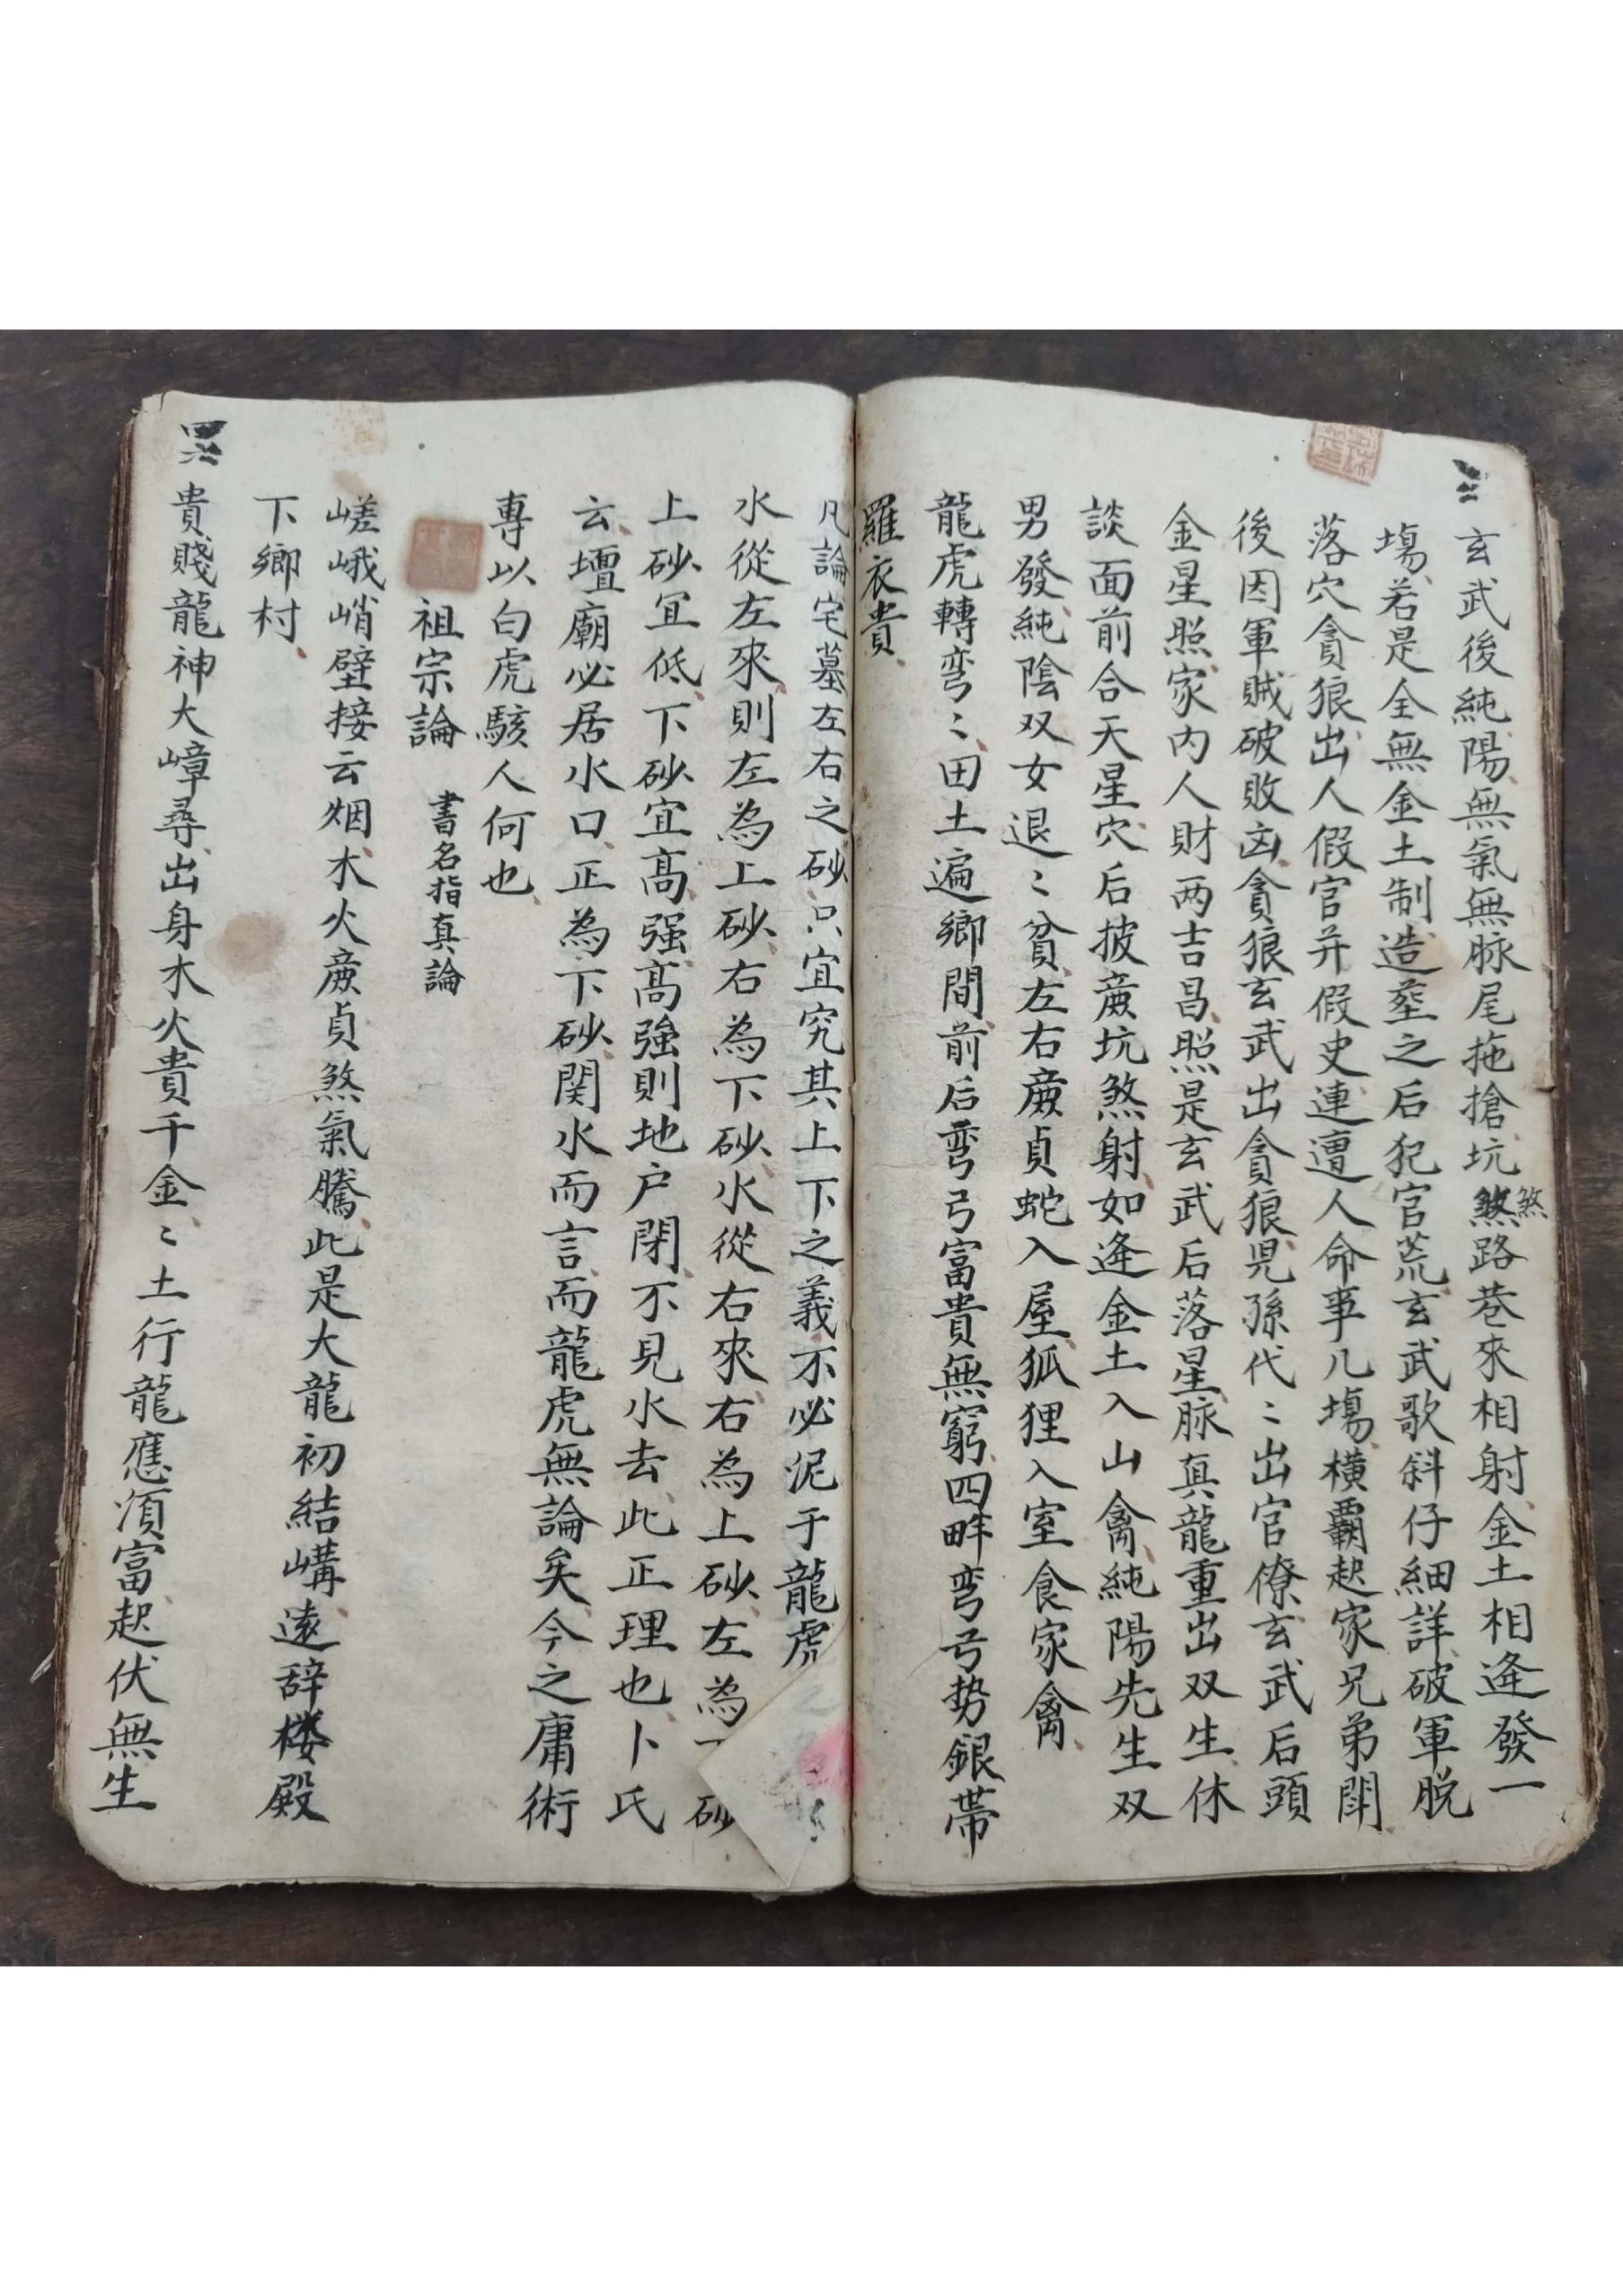 玄武後純陽無氣無脉尾拖搶坑煞路巷來相射金土相逢發一
煞
塲若是全無金土制造葬之后犯官荒玄武歌斜仔細詳破軍脱
落穴貪狼出人假官并假史連遭人命事几塲橫覇起家兄弟鬪
後因軍賊破敗凶貪狼玄武出貪狼児孫代〻出官僚玄武后頭
金星照家内人財两吉昌照是玄武后落星脉真龍重出双生休
談面前合天星穴后披廉坑煞射如逢金土入山禽純陽先生双
男發純陰双女退〻貧左右廉貞蛇入屋狐狸入室食家禽
龍虎轉弯〻田土遍鄉間前后弯弓富貴無窮四畔弯弓势銀帶
羅衣貴
凡論宅墓左右之砂只宜究其上下之義不必泥于龍虎
水從左來則左為上砂右為下砂水從右來右為上砂左為下砂
上砂宜低下砂宜高强高強則地户閉不見水去此正理也卜氏
云壇廟必居水口正為下砂関水而言而龍虎無論矣今之庸術
專以白虎駭人何也
祖宗論 書名指真論
嵯峨峭壁接云烟木火廉貞煞氣騰此是大龍初結構遠辞楼殿
下鄉村
貴賤龍神大嶂尋出身木火貴千金〻土行龍應須富起伏無生